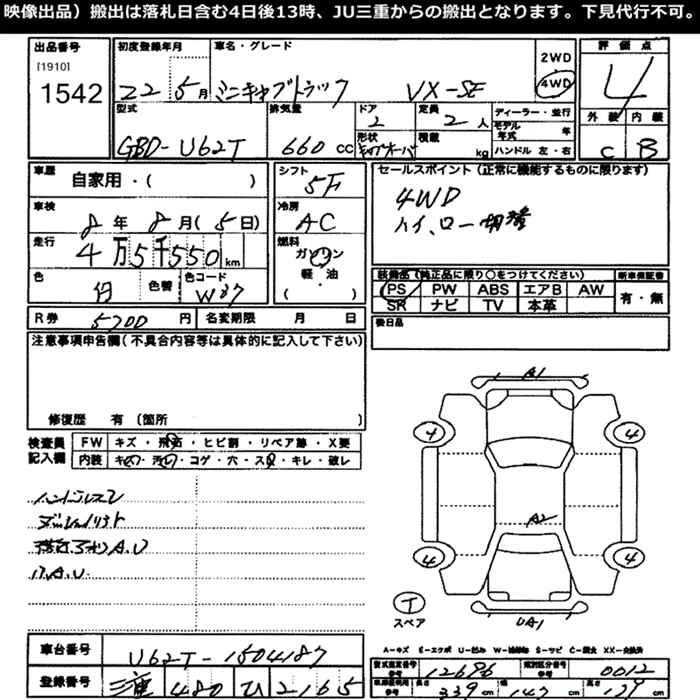 映像出品）搬出は落札日含む4日後13時、JU三重からの搬出となります。下見代行不可。
出品番号 初度登録年月 車名・グレード 2WD 評価点
[1910]
1542 22 5月 ミニキャブトラック VX-SE 4WD 4
型式 排気量 ドア 定員 ディーラー・並行 外装 内装
GBD-U62T 660 CC 2 2人 モデル年式 年
形状 積載 kg ハンドル 左・右 C B
車歴 シフト セールスポイント（正常に機能するものに限ります）
自家用・（ ） 5F 4WD
車検 冷房 ハイ、ロー切替
8年 8月（5日） AC
走行 燃料
4万5千550km ガソリン
色 色替 色コード 軽・油 装備品（純正品に限り○をつけてください） 新車保証書
白 W37 （ ） PS PW ABS エアB AW 有・無
SR ナビ TV 本革
R券 5700円 名変期限 月 日 後日品
注意事項申告欄（不具合内容等は具体的に記入して下さい）
修復歴 有（箇所
検査員 FW キズ・飛石・ヒビ割・リペア跡・X要
記入欄 内装 キズ・汚れ・コゲ・穴・スレ・キレ・破レ
A1
4 4
A2
4 4
T
スペア
UA1
A.U
A.U.
A-キズ E-エクボ U-凹み W-補修跡 S-サビ C-腐食 XX-交換済
車台番号 U62T-1504187 型式指定番号 参考 12696 類別区分番号 参考 0012
登録番号 三重 480 ひ 2165 長さ 339cm 幅 147cm 高さ 179cm